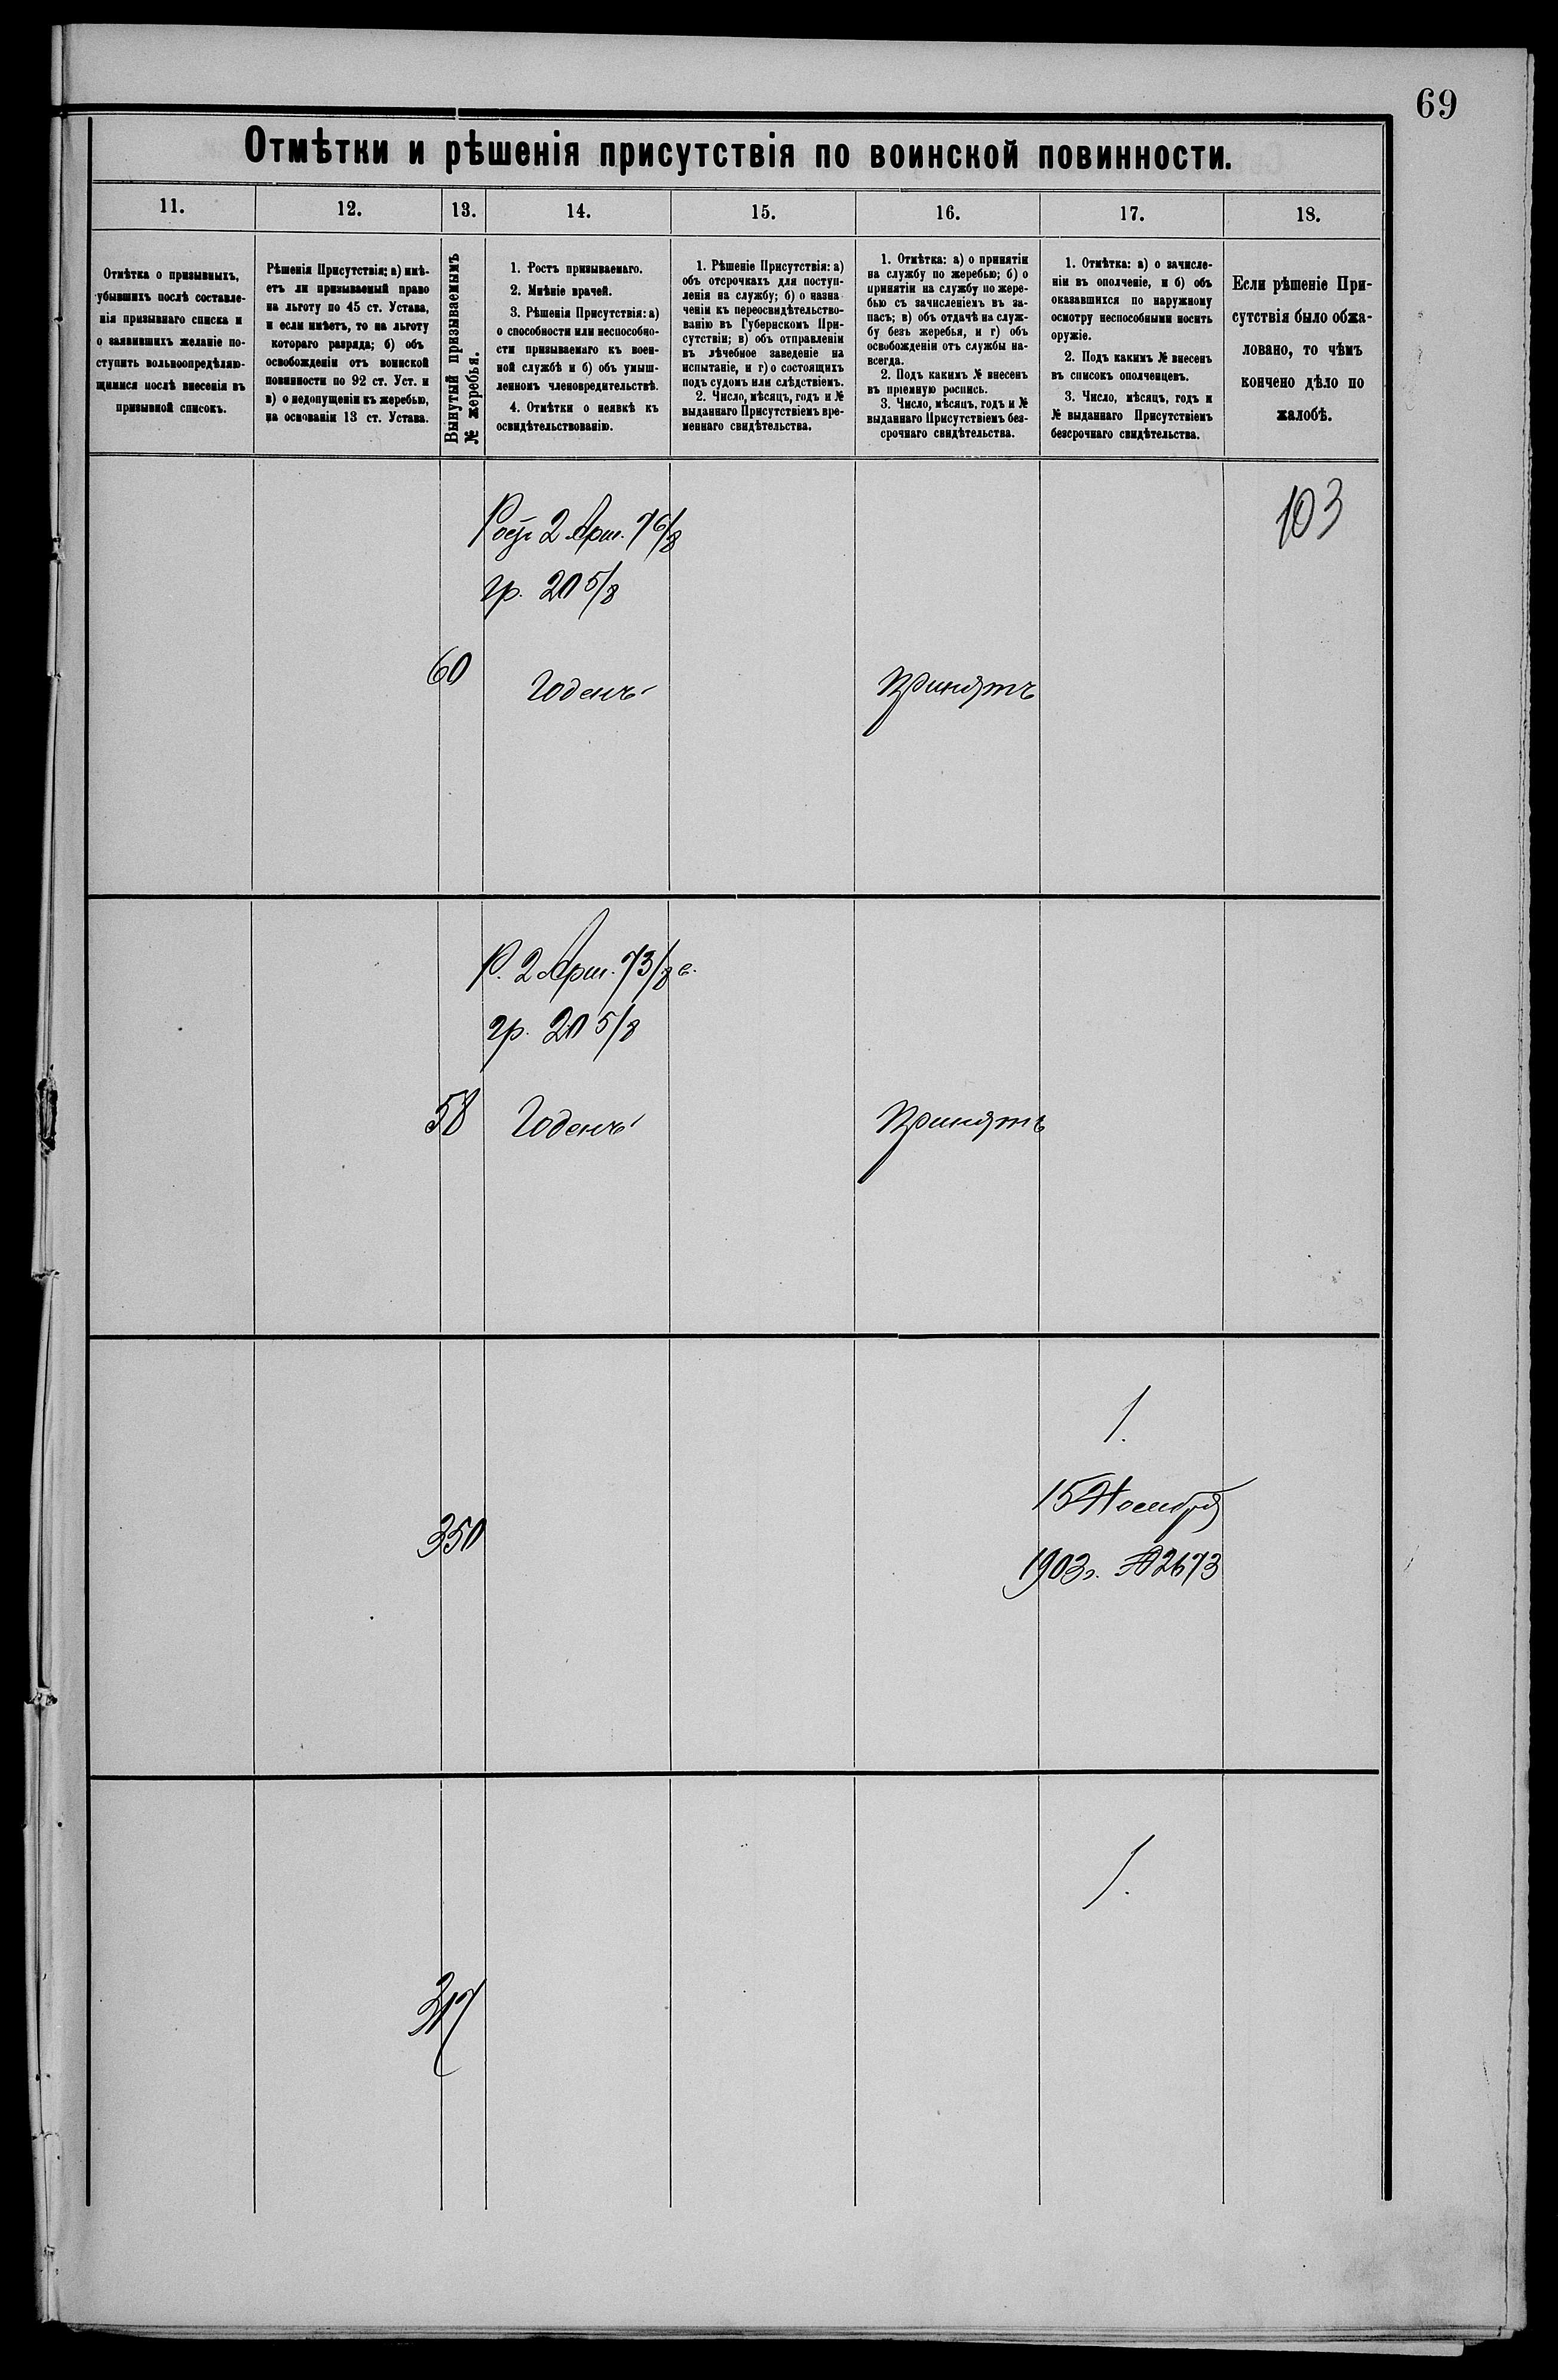 69
Отмѣтки и рѣшенія присутствія по воинской повинности.
11.
12.
13.
14.
15.
16.
17.
18.
Отмѣтка о призывныхъ,
убывшихъ послѣ составле-
нія призывнаго списка и
о заявившихъ желаніе по-
ступить вольноопредѣляю-
щимися послѣ внесенія въ
призывной списокъ.
Рѣшенія Присутствія: а) имѣ-
етъ ли призываемый право
на льготу по 45 ст. Устава,
и если имѣетъ, то на льготу
котораго разряда; б) объ
освобожденіи отъ воинской
повинности по 92 ст. Уст. и
в) о недопущеніи къ жеребью,
на основаніи 13 ст. Устава.
Вынутый призываемымъ
№ жеребья.
1. Ростъ призываемаго.
2. Мнѣніе врачей.
3. Рѣшенія Присутствія: а)
о способности или неспособно-
сти призываемаго къ воен-
ной службѣ и б) объ умыш-
ленномъ членовредительствѣ.
4. Отмѣтки о неявкѣ къ
освидѣтельствованію.
1. Рѣшеніе Присутствія: а)
объ отсрочкахъ для поступ-
ленія на службу; б) о назна
ченіи къ переосвидѣтельство-
ванію въ Губернскомъ При-
сутствіи; в) объ отправленіи
въ лѣчебное заведеніе на
испытаніе, и г) о состоящихъ
подъ судомъ или слѣдствіемъ.
2. Число, мѣсяцъ, годъ и №
выданнаго Присутствіемъ вре-
меннаго свидѣтельства.
1. Отмѣтка: а) о принятіи
на службу по жеребью; б) о
принятіи на службу по жере-
бью съ зачисленіемъ въ за-
пасъ; в) объ отдачѣ на служ-
бу безъ жеребья, и г) объ
освобожденіи отъ службы на-
всегда.
2. Подъ какимъ № внесенъ
въ пріемную роспись.
3. Число, мѣсяцъ, годъ и №
выданнаго Присутствіемъ без-
срочнаго свидѣтельства.
1. Отмѣтка: а) о зачисле-
ніи въ ополченіе, и б) объ
оказавшихся по наружному
осмотру неспособными носить
оружіе.
2. Подъ какимъ № внесенъ
въ списокъ ополченцевъ.
3. Число, мѣсяцъ, годъ и
№ выданнаго Присутствіемъ
безсрочнаго свидѣтельства.
Если рѣшеніе При-
сутствія было обжа-
ловано, то чѣмъ
кончено дѣло по
жалобѣ.
Рост 2 Арш. 7 6/8
гр. 20 5/8
60
Годенъ
Принятъ
103
Р. 2 Арш. 7 3/8 в.
гр. 20 5/8
58
Годенъ
Принятъ
350
1.
15 Ноября
1903 г. № 2673
317
1.